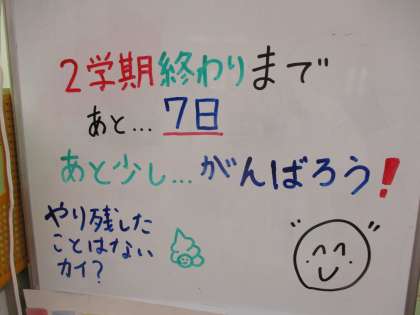 2学期終わりまで
あと... 7日
あと少し... がんばろう!
やり残した
ことはない
カイ?